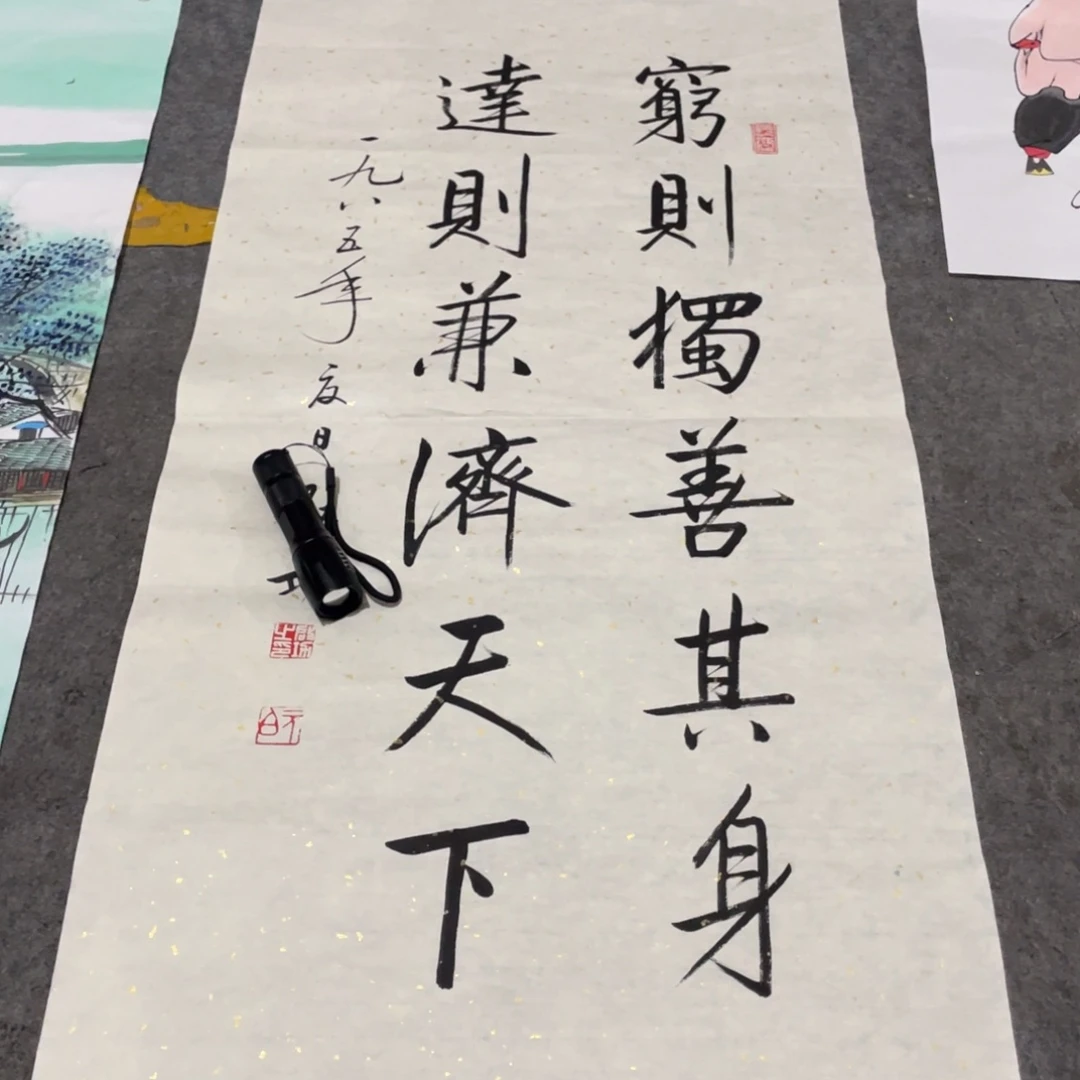 窮則獨善其身
達則兼濟天下
一九八五年夏日